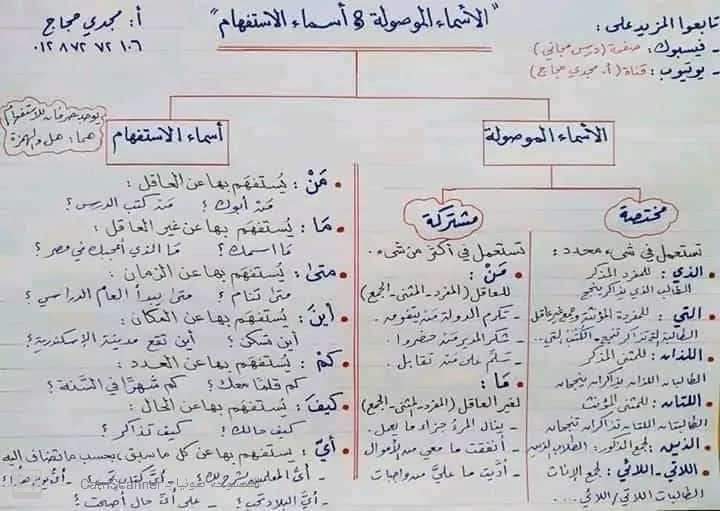 "الأسماء الموصولة & أسماء الاستفهام"
أ: مجدي حجاج
٠١٢٨٧٢٧٢١٠٦
تابعوا المزيد على:
- فيسبوك: صفحة (درس مجاني)
- يوتيوب: قناة (أ. مجدي حجاج)
الأسماء الموصولة
مختصة
تستعمل في شيء محدد:
الذي: للمفرد المذكر
الطالب الذي يذاكر ينجح
التي: للمفردة المؤنثة وجمع غير عاقل
الطالبة التي تذاكر تنجح - الكتب التي..
اللذان: للمثنى المذكر
الطالبان اللذان يذاكران ينجحان
اللتان: للمثنى المؤنث
الطالبتان اللتان تذاكران تنجحان
الذين: لجمع الذكور: الطلاب الذين
اللاتي - اللائي: لجمع الإناث
الطالبات اللاتي/ اللائي....
مشتركة
تستعمل في أكثر من شيء.
مَنْ:
للعاقل (المفرد - المثنى - الجمع)
- تكرم الدولة مَنْ يتفوق.
- شكر المدير مَنْ حضروا.
- سلم على مَنْ تقابل.
مَا:
لغير العاقل (المفرد - المثنى - الجمع)
- ينال المرءُ جزاء ما يعمل.
- أنفقت ما معي من الأموال
- أدَّيت ما عليَّ من واجبات
أسماء الاستفهام
يوجد حرفان للاستفهام
هما: هل والهمزة
مَنْ: يُستفهَم بها عن العاقل:
مَنْ أبوك؟ مَنْ كتب الدرس؟
مَا: يُستفهَم بها عن غير العاقل:
مَا اسمك؟ مَا الذي أعجبك في مصر؟
متى: يُستفهَم بها عن الزمان:
متى تنام؟ متى يبدأ العام الدراسي؟
أينَ: يُستفهَم بها عن المكان:
أين تسكن؟ أين تقع مدينة الإسكندرية؟
كمْ: يُستفهَم بها عن العدد:
كم قلمًا معك؟ كم شهرًا في السَّنة؟
كيفَ: يُستفهَم بها عن الحال:
كيف حالك؟ كيف تذاكر؟
أيّ: يستفهم بها عن كل ما سبق، بحسب ما تضاف إليه
- أيُّ المعلمين شرح لك؟ - أيَّ كتاب تحب؟ - أيُّ يوم هذا؟
- أيَّ البلاد تحب؟ - على أيِّ حال أصبحت؟
CamScanner